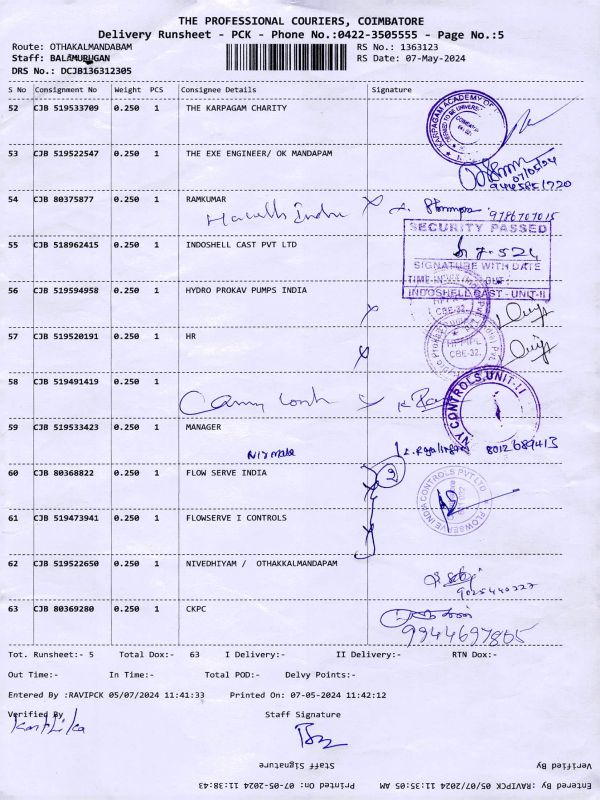 THE PROFESSIONAL COURIERS, COIMBATORE
Delivery Runsheet - PCK - Phone No.:0422-3505555 - Page No.:5
Route: OTHAKALMANDABAM RS No.: 1363123
Staff: BALAMURUGAN RS Date: 07-May-2024
DRS No.: DCJB136312305
S No Consignment No Weight PCS Consignee Details Signature
52 CJB 519533709 0.250 1 THE KARPAGAM CHARITY
KARPAGAM ACADEMY OF
53 CJB 519522547 0.250 1 THE EXE ENGINEER/ OK MANDAPAM
07/05/24
54 CJB 80375877 0.250 1 RAMKUMAR
9786707015
SECURITY PASSED
55 CJB 518962415 0.250 1 INDOSHELL CAST PVT LTD
7.5.24
SIGNATURE WITH DATE
TIME-IN OUT:
56 CJB 519594958 0.250 1 HYDRO PROKAV PUMPS INDIA
INDOSHELL CAST - UNIT-II
CBE-32.
57 CJB 519520191 0.250 1 HR
CBE-32.
58 CJB 519491419 0.250 1
NY CONTROLS, UNIT-II
59 CJB 519533423 0.250 1 MANAGER
8012689413
60 CJB 80368822 0.250 1 FLOW SERVE INDIA
2
FLOWSERVE INDIA CONTROLS PVT LTD
61 CJB 519473941 0.250 1 FLOWSERVE I CONTROLS
62 CJB 519522650 0.250 1 NIVEDHIYAM / OTHAKKALMANDAPAM
63 CJB 80369280 0.250 1 CKPC
Tot. Runsheet:- 5 Total Dox:- 63 I Delivery:- II Delivery:- RTN Dox:-
Out Time:- In Time:- Total POD:- Delvy Points:-
Entered By :RAVIPCK 05/07/2024 11:41:33 Printed On: 07-05-2024 11:42:12
Verified By Staff Signature
Verified By Staff Signature
Entered By :RAVIPCK 05/07/2024 11:35:05 AM Printed On: 07-05-2024 11:38:43